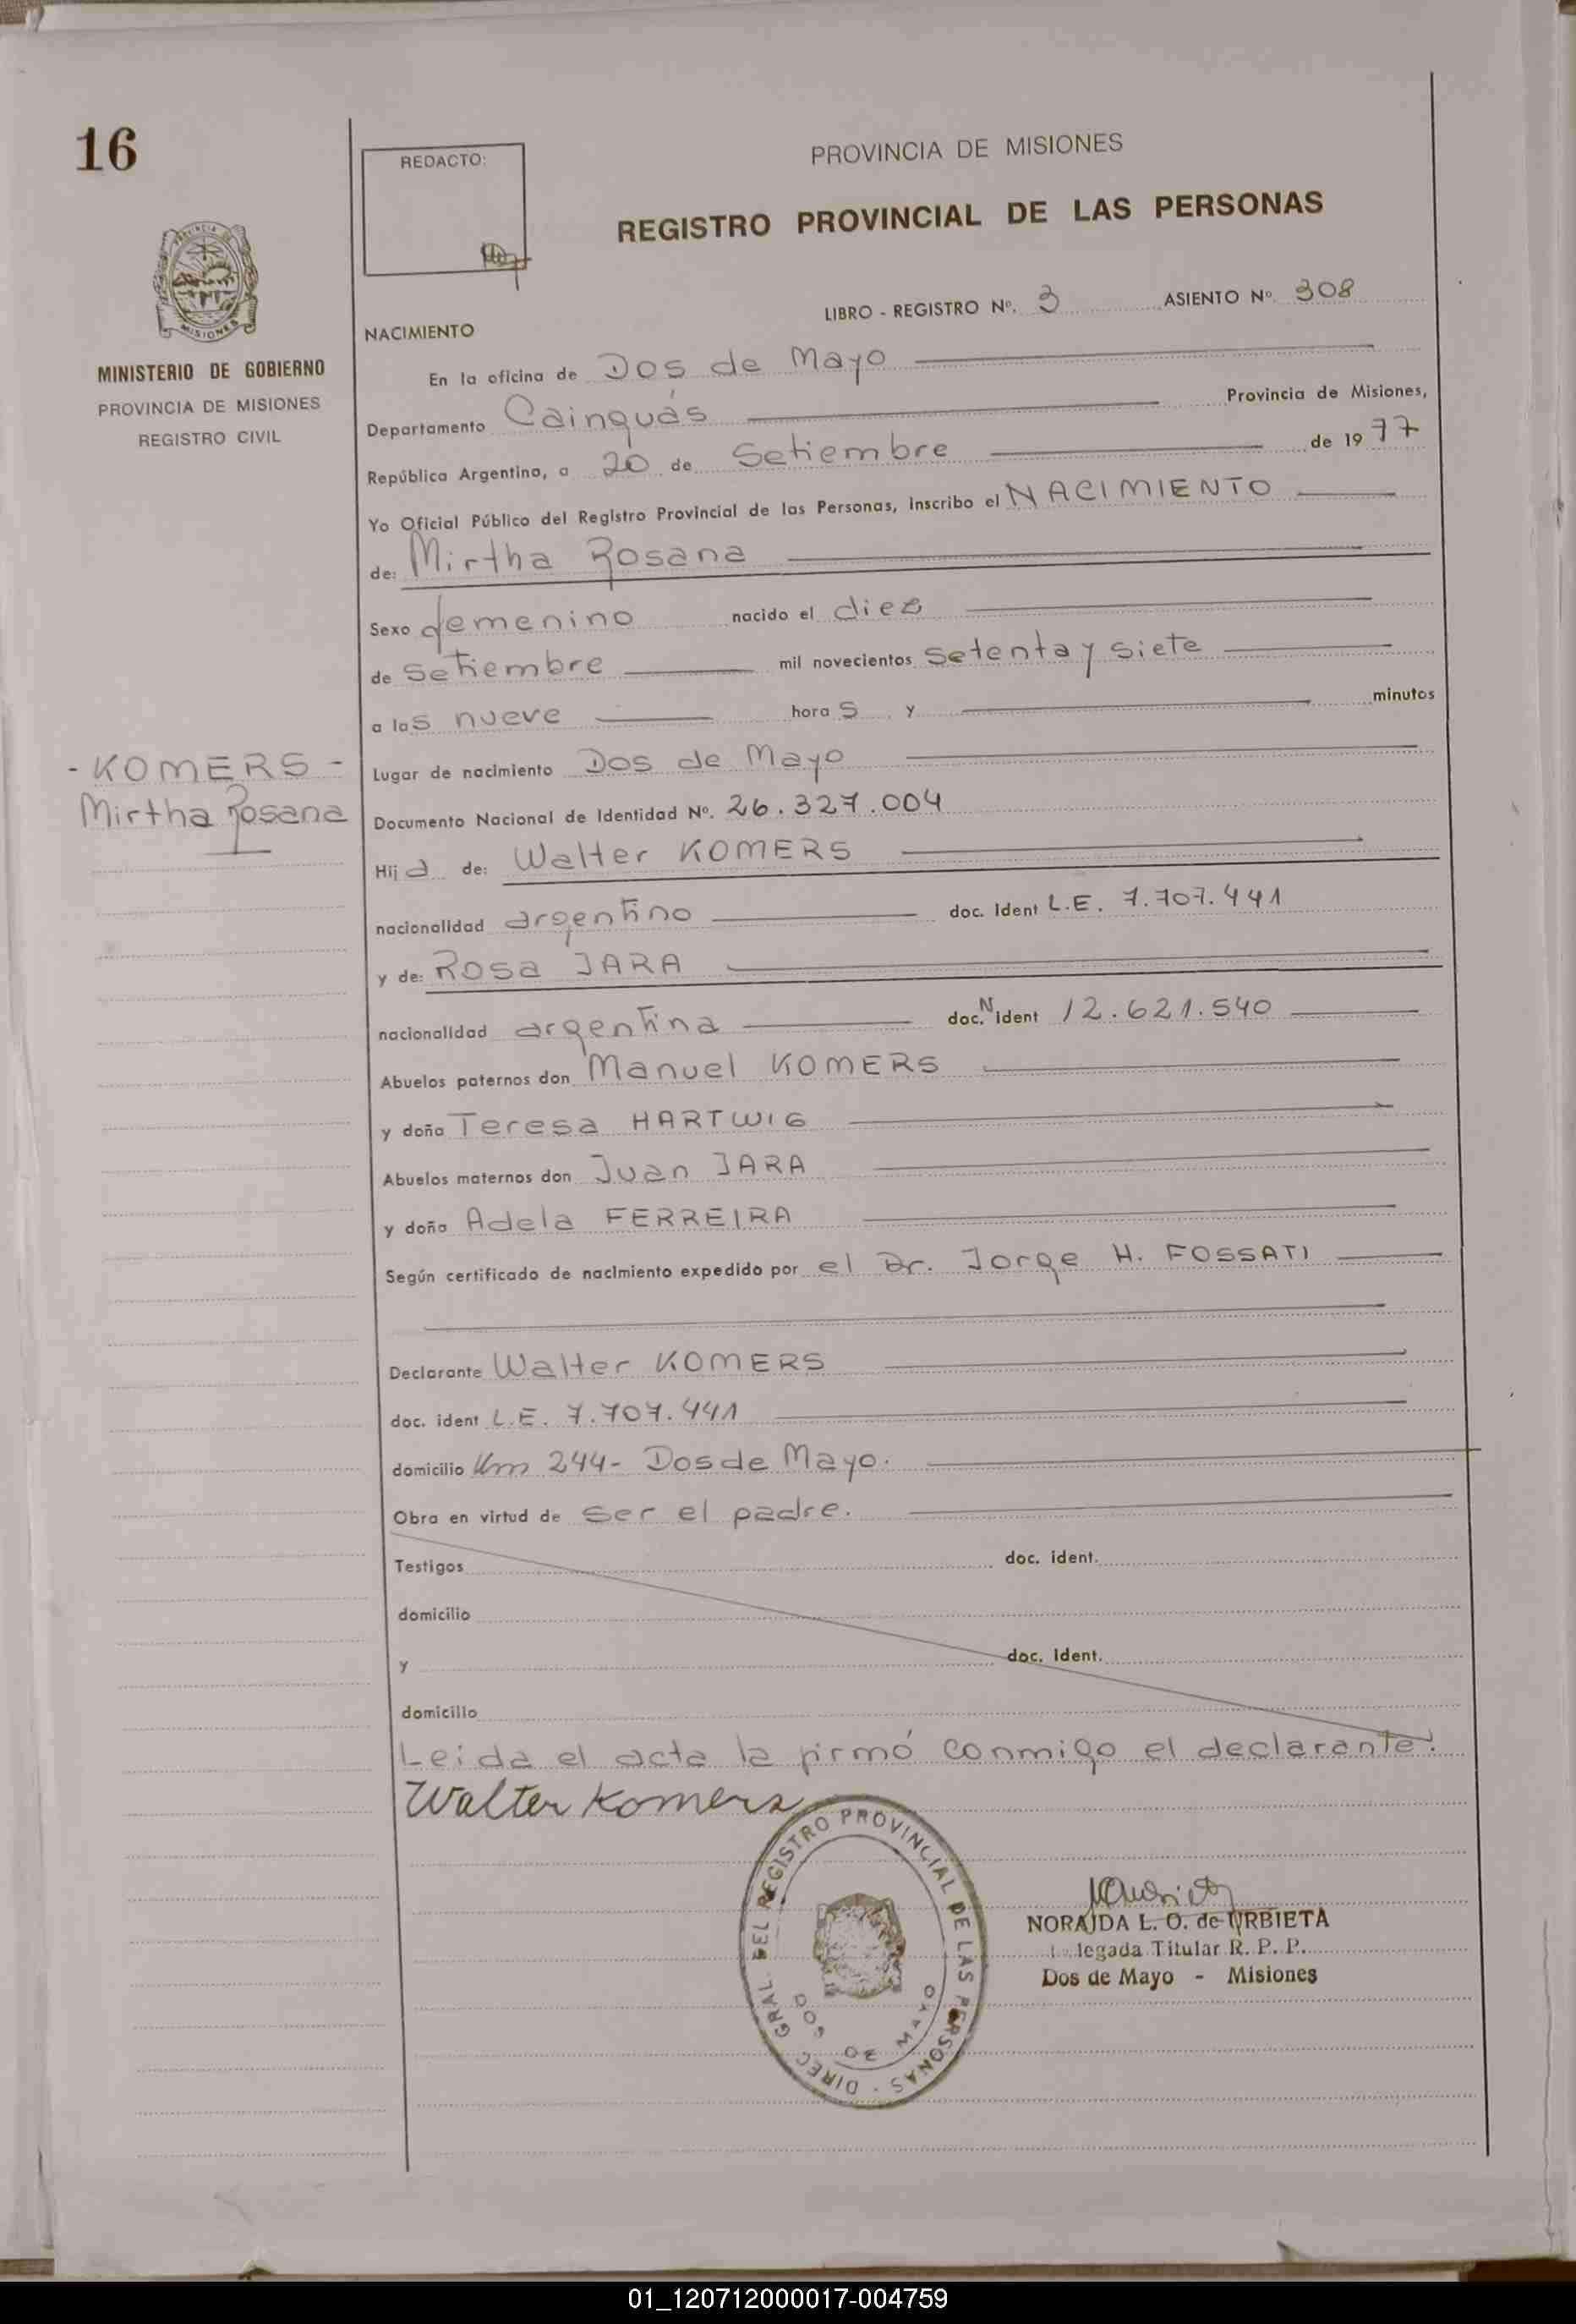 16
REDACTO:
PROVINCIA DE MISIONES
REGISTRO PROVINCIAL DE LAS PERSONAS
MISIONES
MINISTERIO DE GOBIERNO
PROVINCIA DE MISIONES
REGISTRO CIVIL
LIBRO - REGISTRO Nº. 3 ASIENTO Nº. 308
NACIMIENTO
En la oficina de Dos de Mayo
Departamento Cainguás Provincia de Misiones,
República Argentina, a 20 de Setiembre de 1977
Yo Oficial Público del Registro Provincial de las Personas, inscribo el NACIMIENTO
de: Mirtha Rosana
Sexo femenino nacido el diez
de Setiembre mil novecientos setenta y siete
a las nueve horas y minutos
- KOMERS -
Mirtha Rosana
Lugar de nacimiento Dos de Mayo
Documento Nacional de Identidad Nº. 26.327.004
Hija de: Walter KOMERS
nacionalidad argentino doc. ident L.E. 7.707.441
y de: Rosa JARA
nacionalidad argentina doc. N ident 12.621.540
Abuelos paternos don Manuel KOMERS
y doña Teresa HARTWIG
Abuelos maternos don Juan JARA
y doña Adela FERREIRA
Según certificado de nacimiento expedido por el Dr. Jorge H. FOSSATI
Declarante Walter KOMERS
doc. ident L.E. 7.707.441
domicilio Km 244- Dos de Mayo.
Obra en virtud de ser el padre.
Testigos doc. ident.
domicilio
y doc. ident.
domicilio
Leída el acta la firmó conmigo el declarante.
Walter Komers
DIREC. GRAL. DEL REGISTRO PROVINCIAL DE LAS PERSONAS -
DOS DE MAYO
NORAIDA L. O. de URBIETA
legada Titular R. P. P.
Dos de Mayo - Misiones
01_120712000017-004759